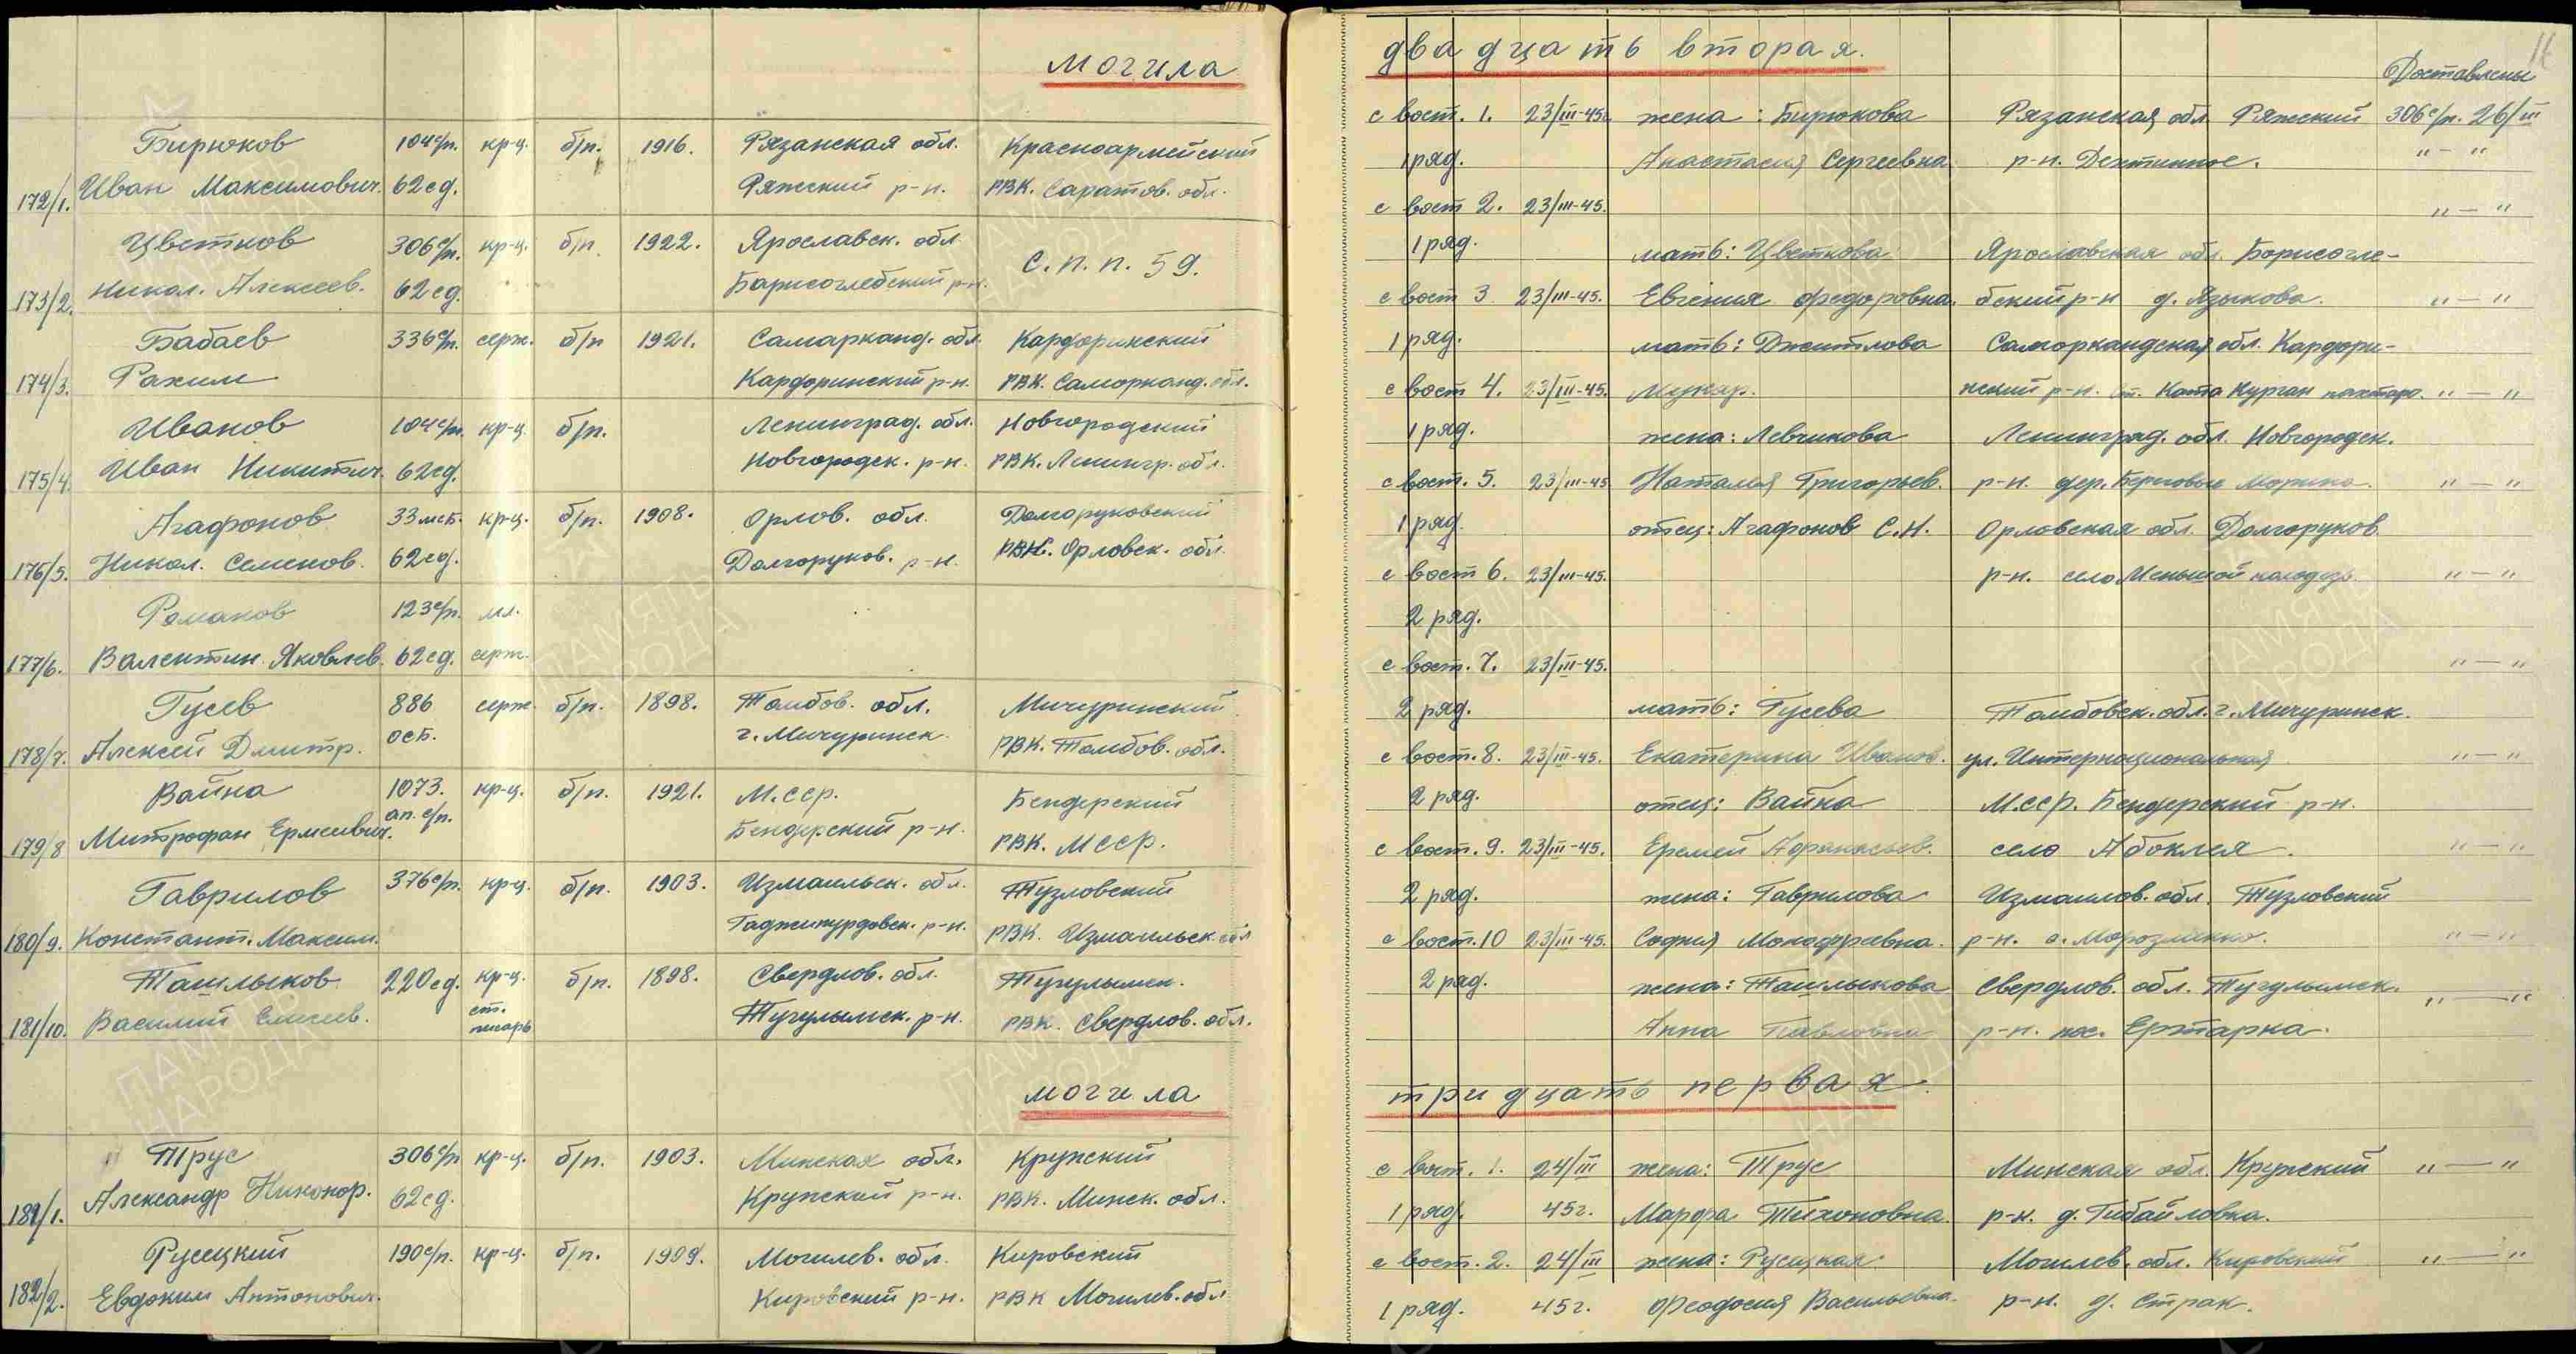 могила
Бирюков 104с/п. кр-ц. б/п. 1916. Рязанская обл. Красноармейский
172/1. Иван Максимович. 62сд. Ряжский р-н. РВК. Саратов. обл.
Цветков 306с/п. кр-ц. б/п. 1922. Ярославск. обл. С.п.п. 59.
173/2. Никол. Алексеев. 62сд. Барисоглебский р-н.
Бабаев 336с/п. серж. б/п 1921. Самарканд. обл. Кардоринский
174/3. Рахим Кардоринский р-н. РВК. Саморканд. обл.
Иванов 104с/п. кр-ц б/п. Ленинград. обл. Новгородский
175/4. Иван Никитич. 62сд. Новгородск. р-н. РВК. Ленингр. обл.
Агафонов 33мсб. кр-ц. б/п. 1908. Орлов. обл. Долгоруковский
176/5. Никол. Семенов. 62сд. Долгоруков. р-н. РВК. Орловск. обл.
Романов 123с/п. мл.
177/6. Валентин Яковлев. 62сд. серж.
Гусев 886 серж. б/п. 1898. Тамбов. обл. Мичуринский
178/7. Алексей Дмитр. осб. г. Мичуринск. РВК. Тамбов. обл.
Вайна 1073. кр-ц. б/п. 1921. М.сср. Бендерский
179/8 Митрофан Ермеевич. ап. с/п. Бендерский р-н. РВК. Мсср.
Гаврилов 376с/п. кр-ц. б/п. 1903. Измаильск. обл. Тузловский
180/9. Констант. Максим. р-н. РВК. Измаильск обл
Ташлыков 220сд. кр-ц. б/п. 1898. Свердлов. обл. Тугулымск.
181/10. Василий Елисеев. ст. писарь Тугулымск. р-н. РВК. Свердлов. обл.
могила
Трус 306с/п кр-ц. б/п. 1903. Минская обл. Крупский
181/1. Александр Никонор. 62сд. Крупский р-н. РВК. Минск. обл.
Русецкий 190с/п. кр-ц. б/п. 1909. Могилев. обл. Кировский
182/2. Евдоким Антонович. Кировский р-н. РВК Могилев. обл
двадцать вторая.
Доставлены
с вост. 1. 23/III-45. жена: Бирюкова Рязанская обл Ряжский 306с/п. 26/III
1 ряд. Анастасия Сергеевна р-н. Дехтинное. "—"
с вост 2. 23/III-45. "—"
1 ряд. мать: Цветкова Ярославская обл. Борисогле-
с вост 3 23/III-45. Евгения Федоровна. бский р-н д. Языкова. "—"
1 ряд. мать: Джитлова Саморкандская обл. Кардори-
с вост 4. 23/III-45. нский р-н. ст. Ката Курган "—"
1 ряд. жена: Левчикова Ленинград. обл. Новгородск.
с вост. 5. 23/III-45 Наталия Григорьев. р-н. дер. "—"
1 ряд. отец: Агафонов С.Н. Орловская обл. Долгоруков
с вост 6. 23/III-45. р-н. село Меньшой колодезь. "—"
2 ряд.
с вост. 7. 23/III-45. "—"
2 ряд. мать: Гусева Тамбовск. обл. г. Мичуринск.
с вост. 8. 23/III-45. Екатерина Иванов. ул. Интернациональная "—"
2 ряд. отец: Вайна М.сср. Бендерский р-н.
с вост. 9. 23/III-45. Еремей Афанасьев. село Абоклея. "—"
2 ряд. жена: Гаврилова Измаилов. обл. Тузловский
с вост. 10 23/III-45. София р-н. "—"
2 ряд. жена: Ташлыкова Свердлов. обл. Тугулымск. "—"
Анна Павловна р-н. пос. Ертарка.
тридцать первая.
с вост. 1. 24/III жена: Трус Минская обл. Крупский "—"
1 ряд. 45г. Марфа Тихоновна. р-н. д. Гибайловка.
с вост. 2. 24/III жена: Русецкая Могилев. обл. Кировский "—"
1 ряд. 45г. Феодосия Васильевна. р-н. д. Страк.
ПАМЯТЬ НАРОДА